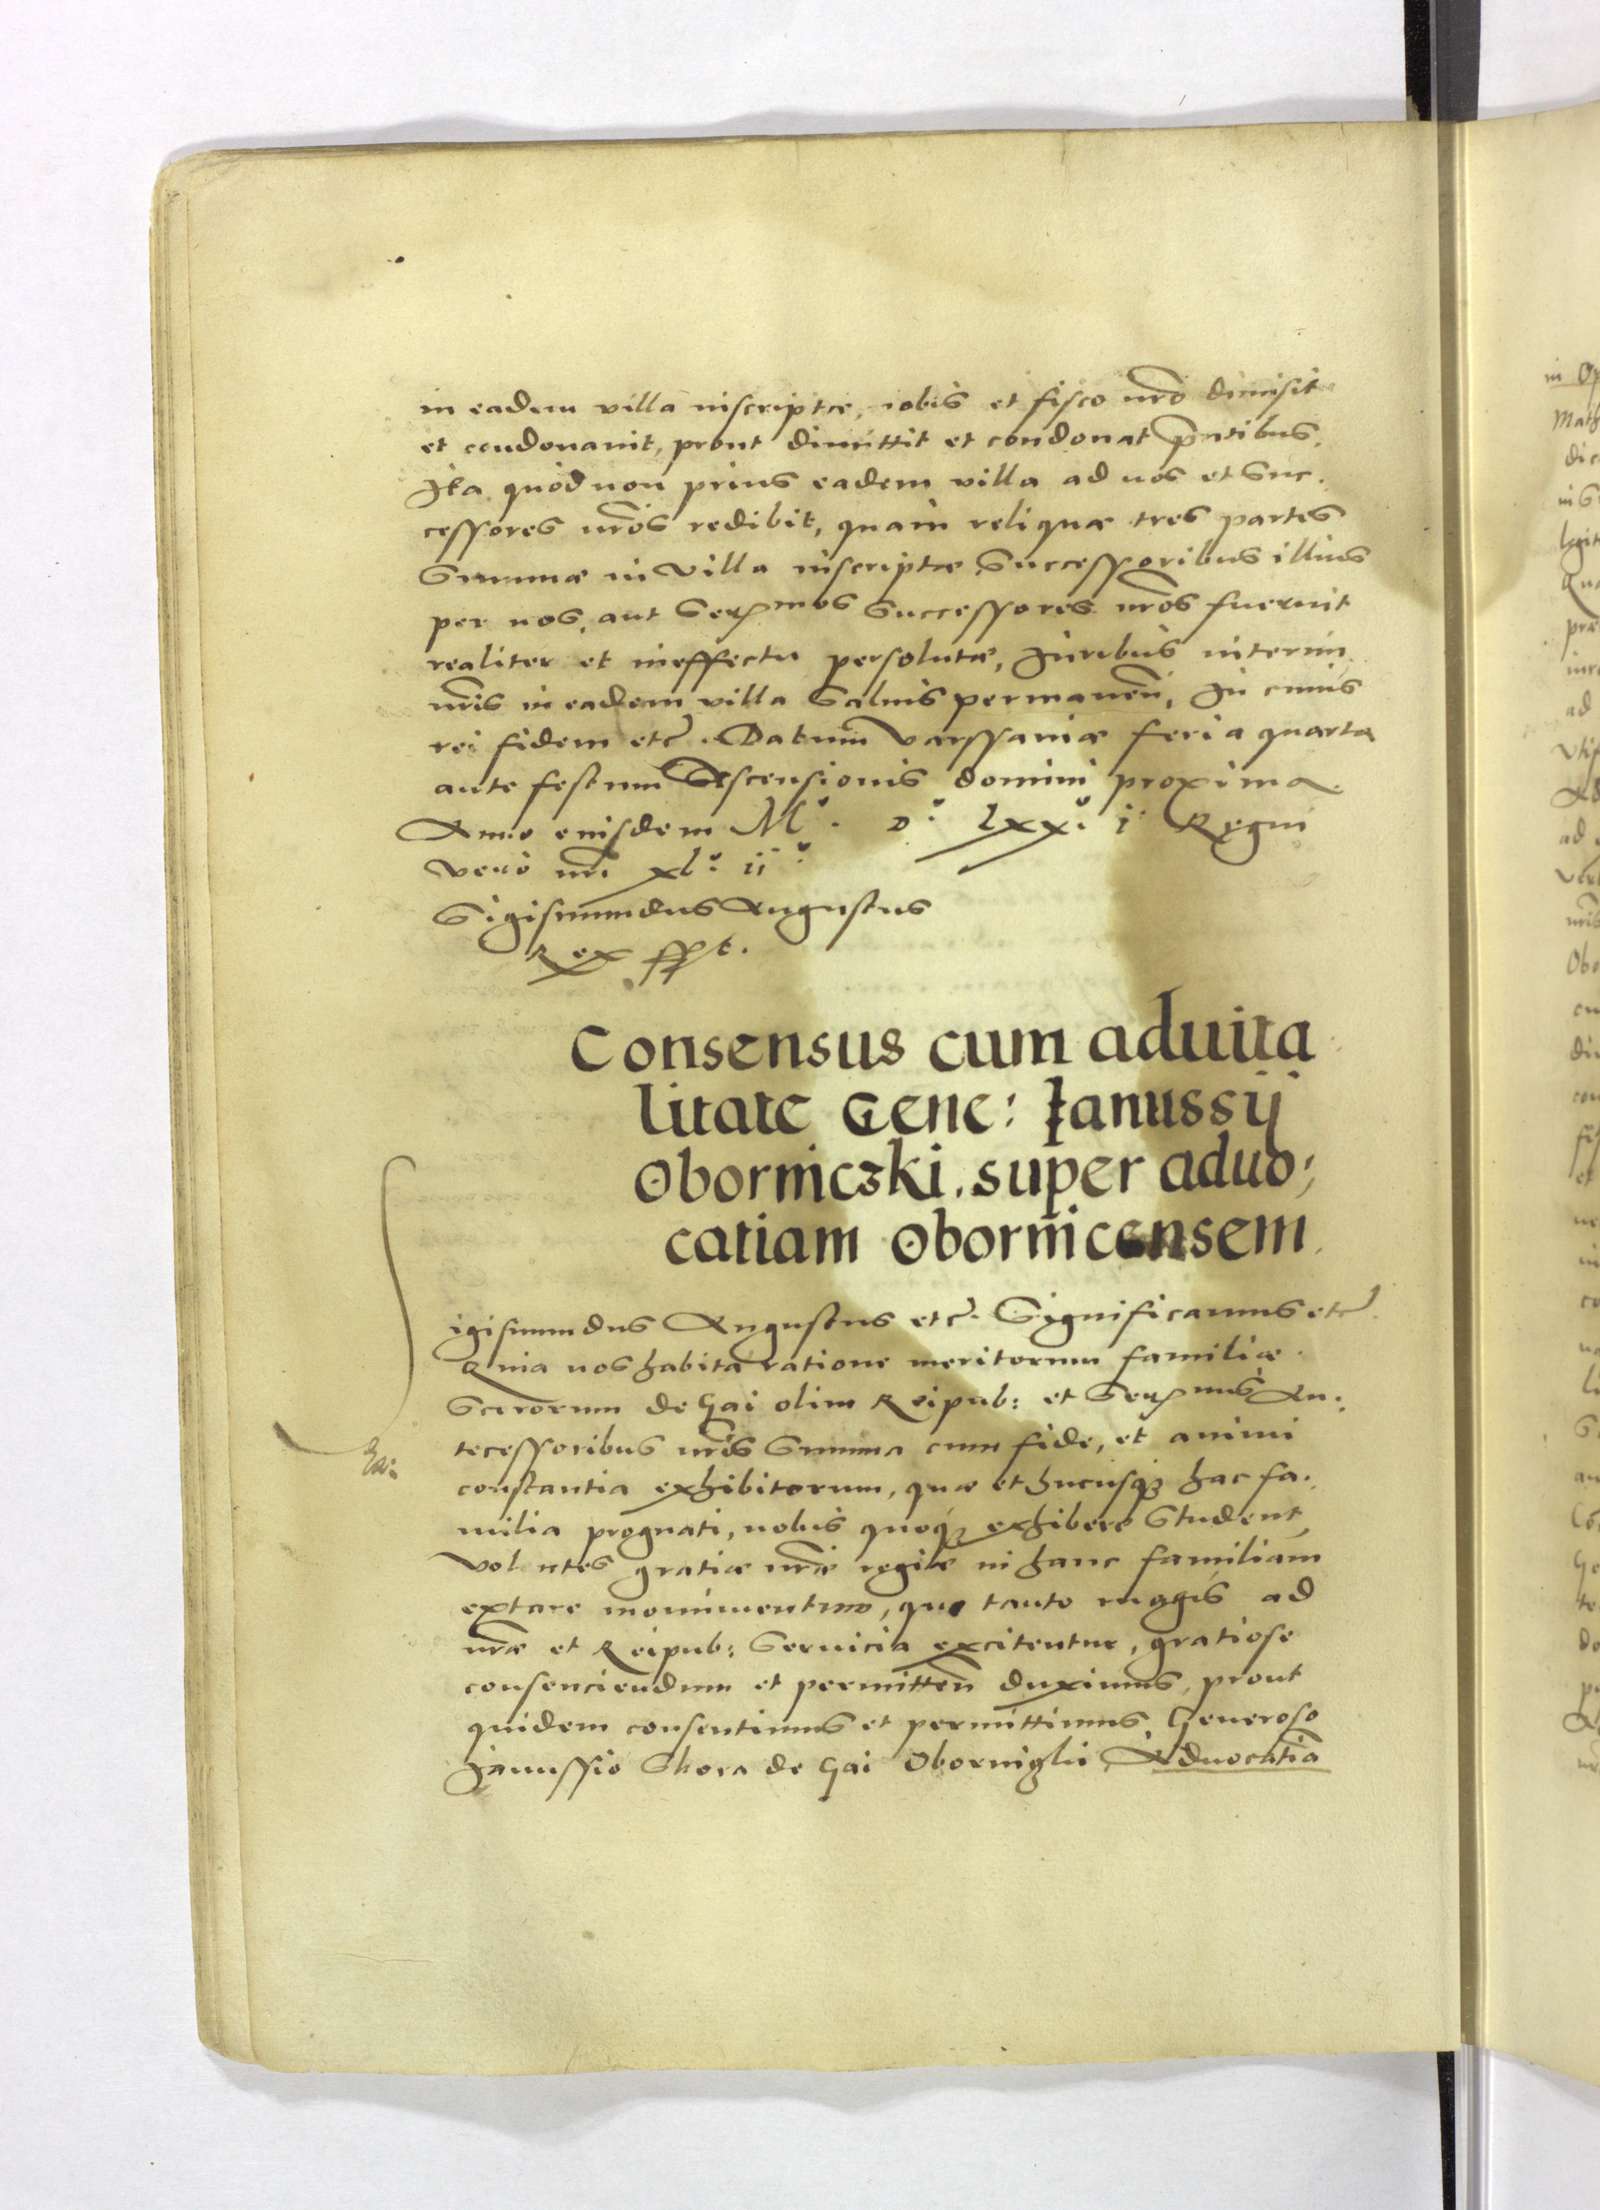 in eadem villa inscriptæ, nobis et fisco nr̃o dimisit
et condonauit, prout dimittit et condonat p̃ntibus.
Ita quòd non prius eadem villa ad nos et Suc.
cessores nr̃os redibit, quam reliquæ tres partes
Summæ in villa inscriptæ Successoribus illius
per nos, aut Serᵐᵒˢ Successores nr̃os fuerint
realiter et in effectu persolutæ, Iuribus interim
nr̃is in eadem villa Saluis permanen̄, In cuius
rei fidem etc̃. Datum varssauiæ feria quarta
ante festum Ascensionis domini proxima.
Anno eiusdem Mᵒ. Dᵒ. lxxᵒ. iᵒ Regni
verò nr̃i xlᵒ. iiᵒ
Sigismundus Augustus
Rex sspt.
Consensus cum aduita
litate Gene: Ianussij
Oborniczki. super aduo;
catiam Obornicensem.
igismundus Augustus etc̃. Significamus etc̃.
Quia nos habita ratione meritorum familiæ
Scrorum de Gai olim Reipub: et Serᵐⁱˢ An.
tecessoribus nr̃is Summa cum fide, et animi
constantia exhibitorum, quæ et hucusq3 hac fa.
milia prognati, nobis quoq3 exhibere Student,
Volentes gratiæ nr̃æ regiæ in hanc familiam
extare monumentum, quo tanto magis ad
nr̃æ et Reipub: Seruicia excitentur, gratiose
consenciendum et permitten̄ duximus, prout
quidem consentimus et permittimus, Generoso
Janussio Skora de Gai Oborniglii Aduocatia